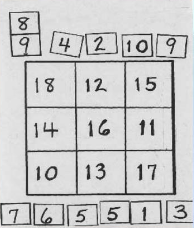 8
9 4 2 10 9
18 12 15
14 16 11
10 13 17
7 6 5 5 1 3